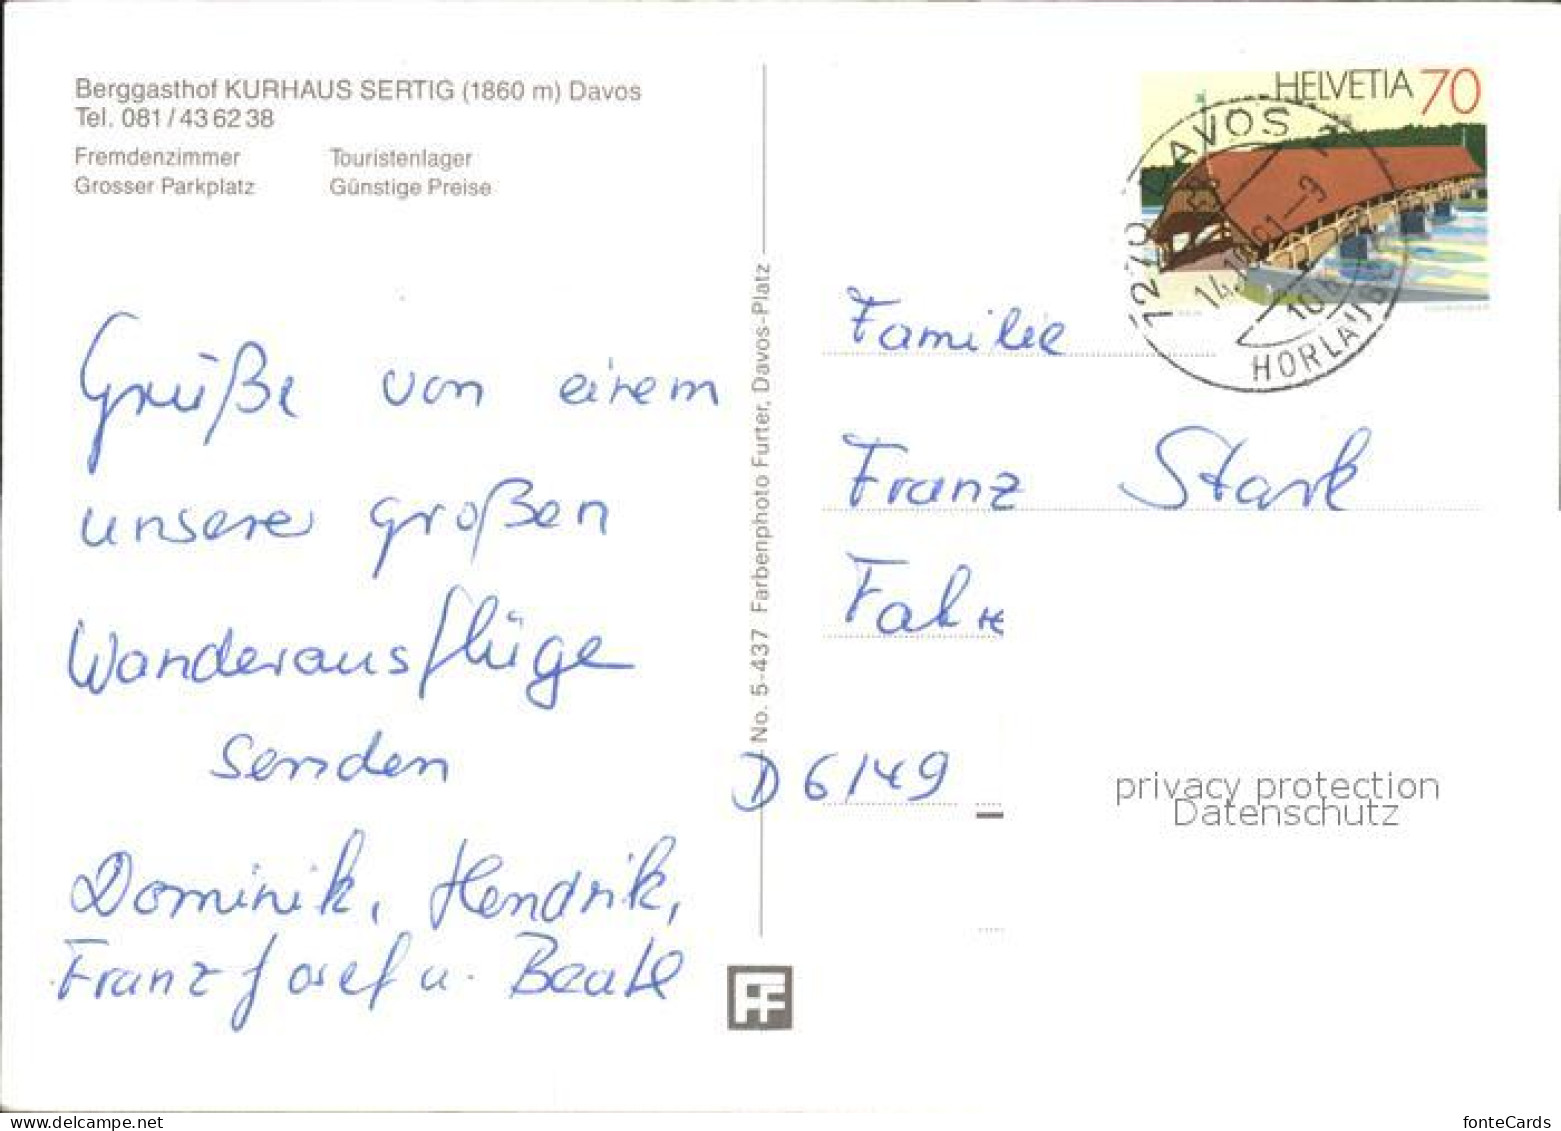 Berggasthof KURHAUS SERTIG (1860 m) Davos
Tel. 081/43 62 38
Fremdenzimmer Touristenlager
Grosser Parkplatz Günstige Preise
Grüße von einem
unserer großen
Wanderausflüge
senden
Dominik, Hendrik,
Franz Josef u. Beate
No. 5-437 Farbenphoto Furter, Davos-Platz
FF
HELVETIA 70
7270 DAVOS
HORLAUBEN
Familie
Franz Stark
D 6149
privacy protection
Datenschutz
delcampe.net
fonteCards